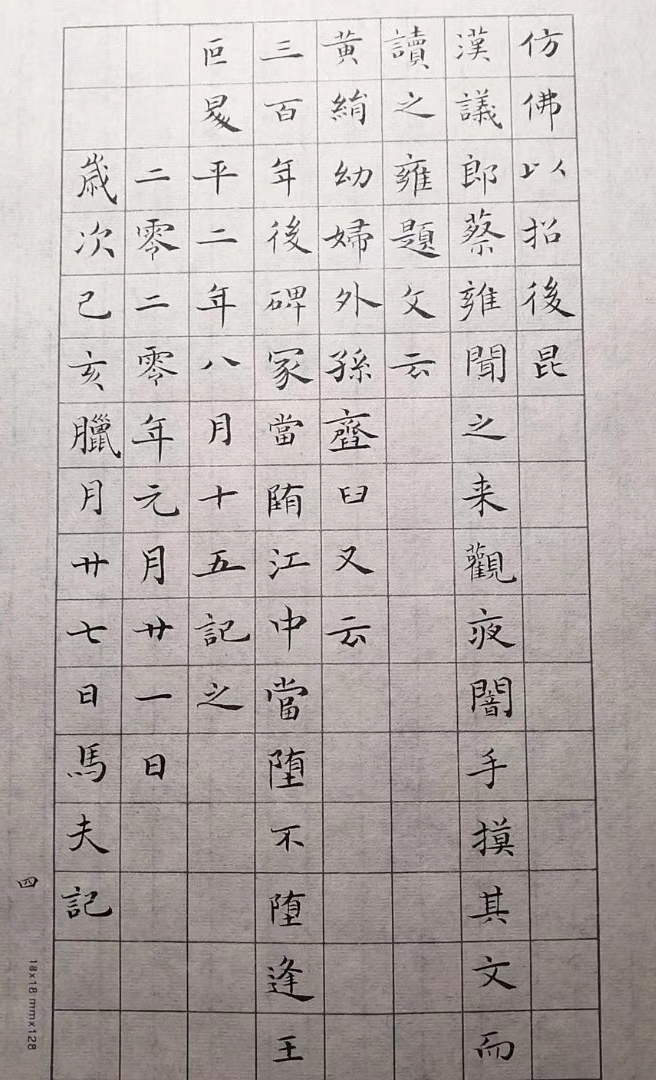 仿佛以招後昆
漢議郎蔡雍聞之来觀夜闇手摸其文而
讀之雍題文云
黄絹幼婦外孫齏臼又云
三百年後碑冢當陏江中當堕不堕逢王
叵昇平二年八月十五記之
二零二零年元月廿一日
歲次己亥臘月廿七日馬夫記
四
18x18 mmx128